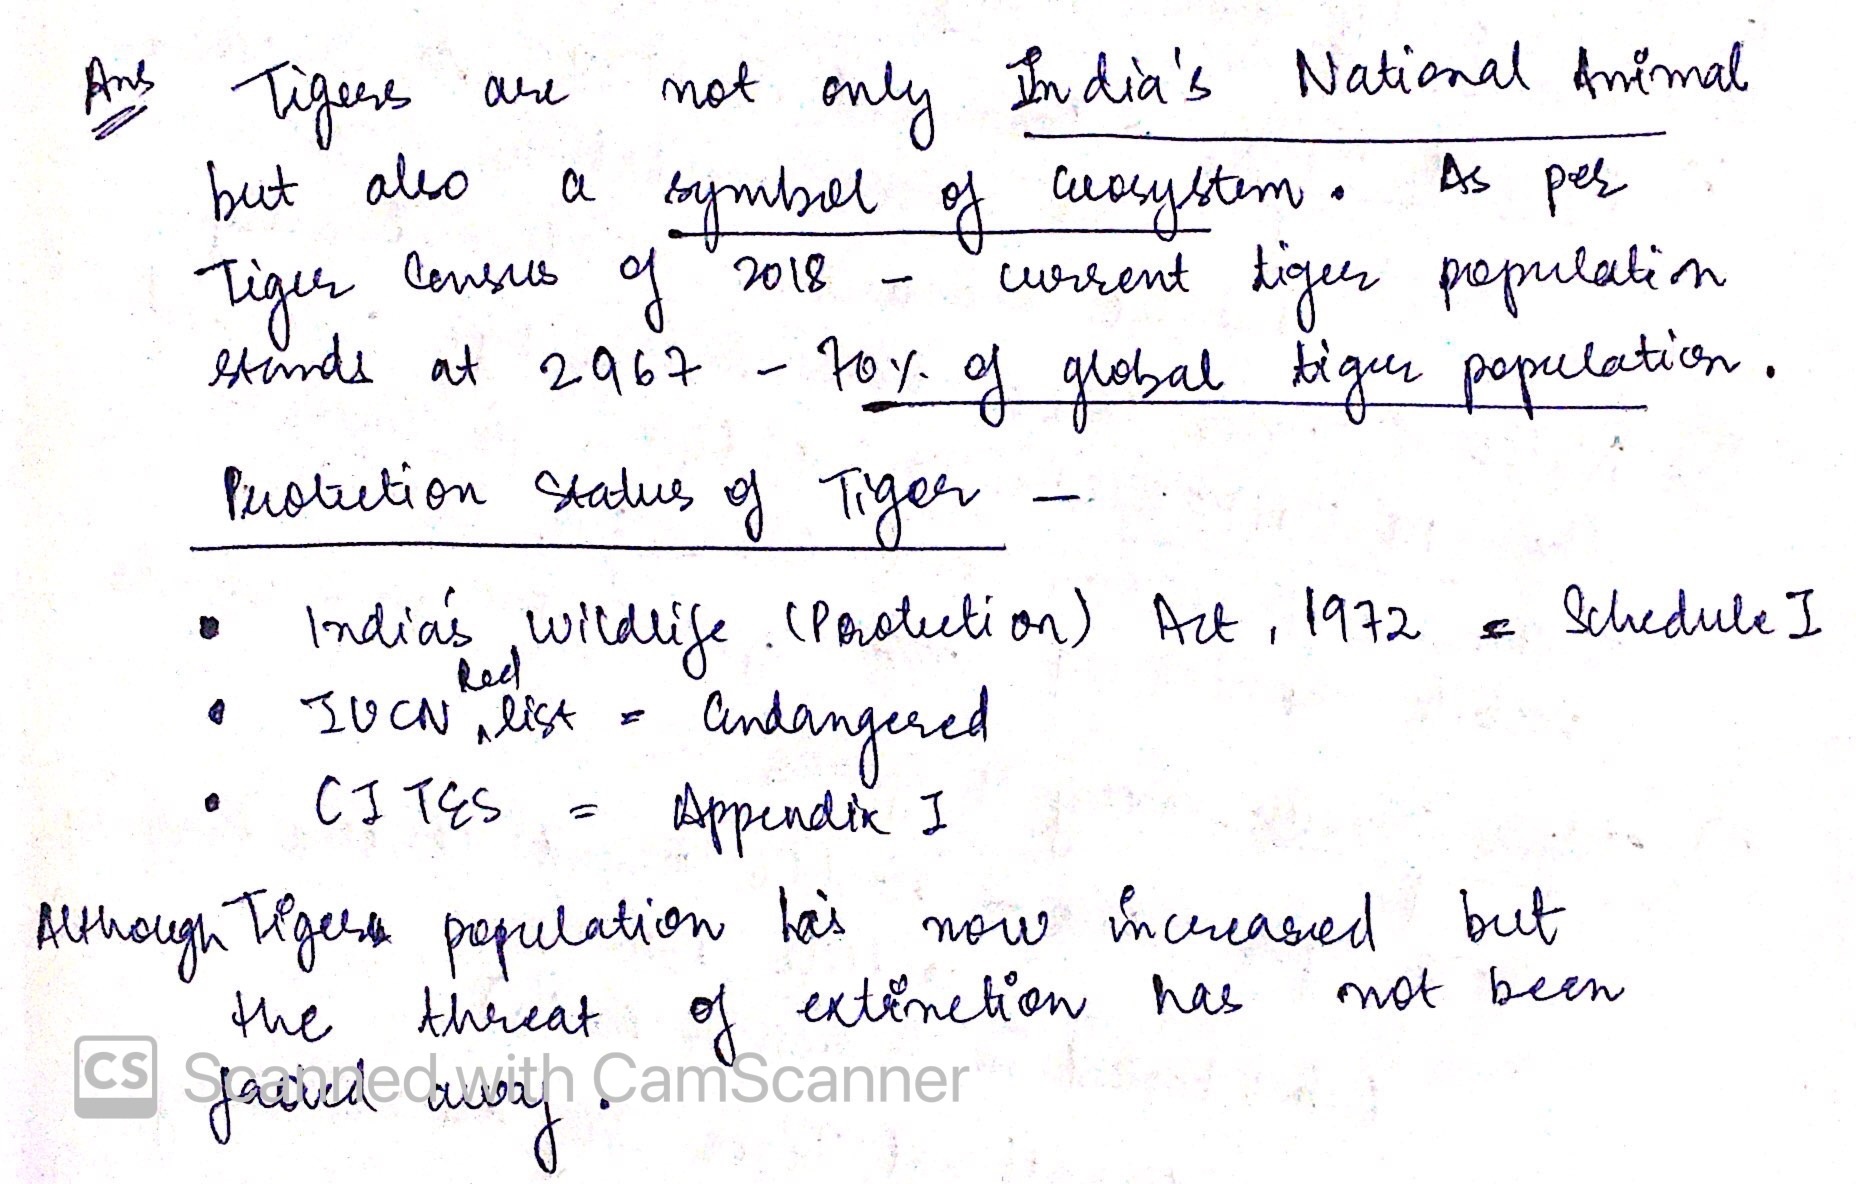 Ans Tigers are not only India's National Animal
but also a symbol of ecosystem. As per
Tiger Census of 2018 - current tiger population
stands at 2967 - 70% of global tiger population.
Protection Status of Tiger -
• India's Wildlife (Protection) Act, 1972 = Schedule I
• IUCN Red list = Endangered
• CITES = Appendix I
Although Tigers population has now increased but
the threat of extinction has not been
faded away.
CS Scanned with CamScanner